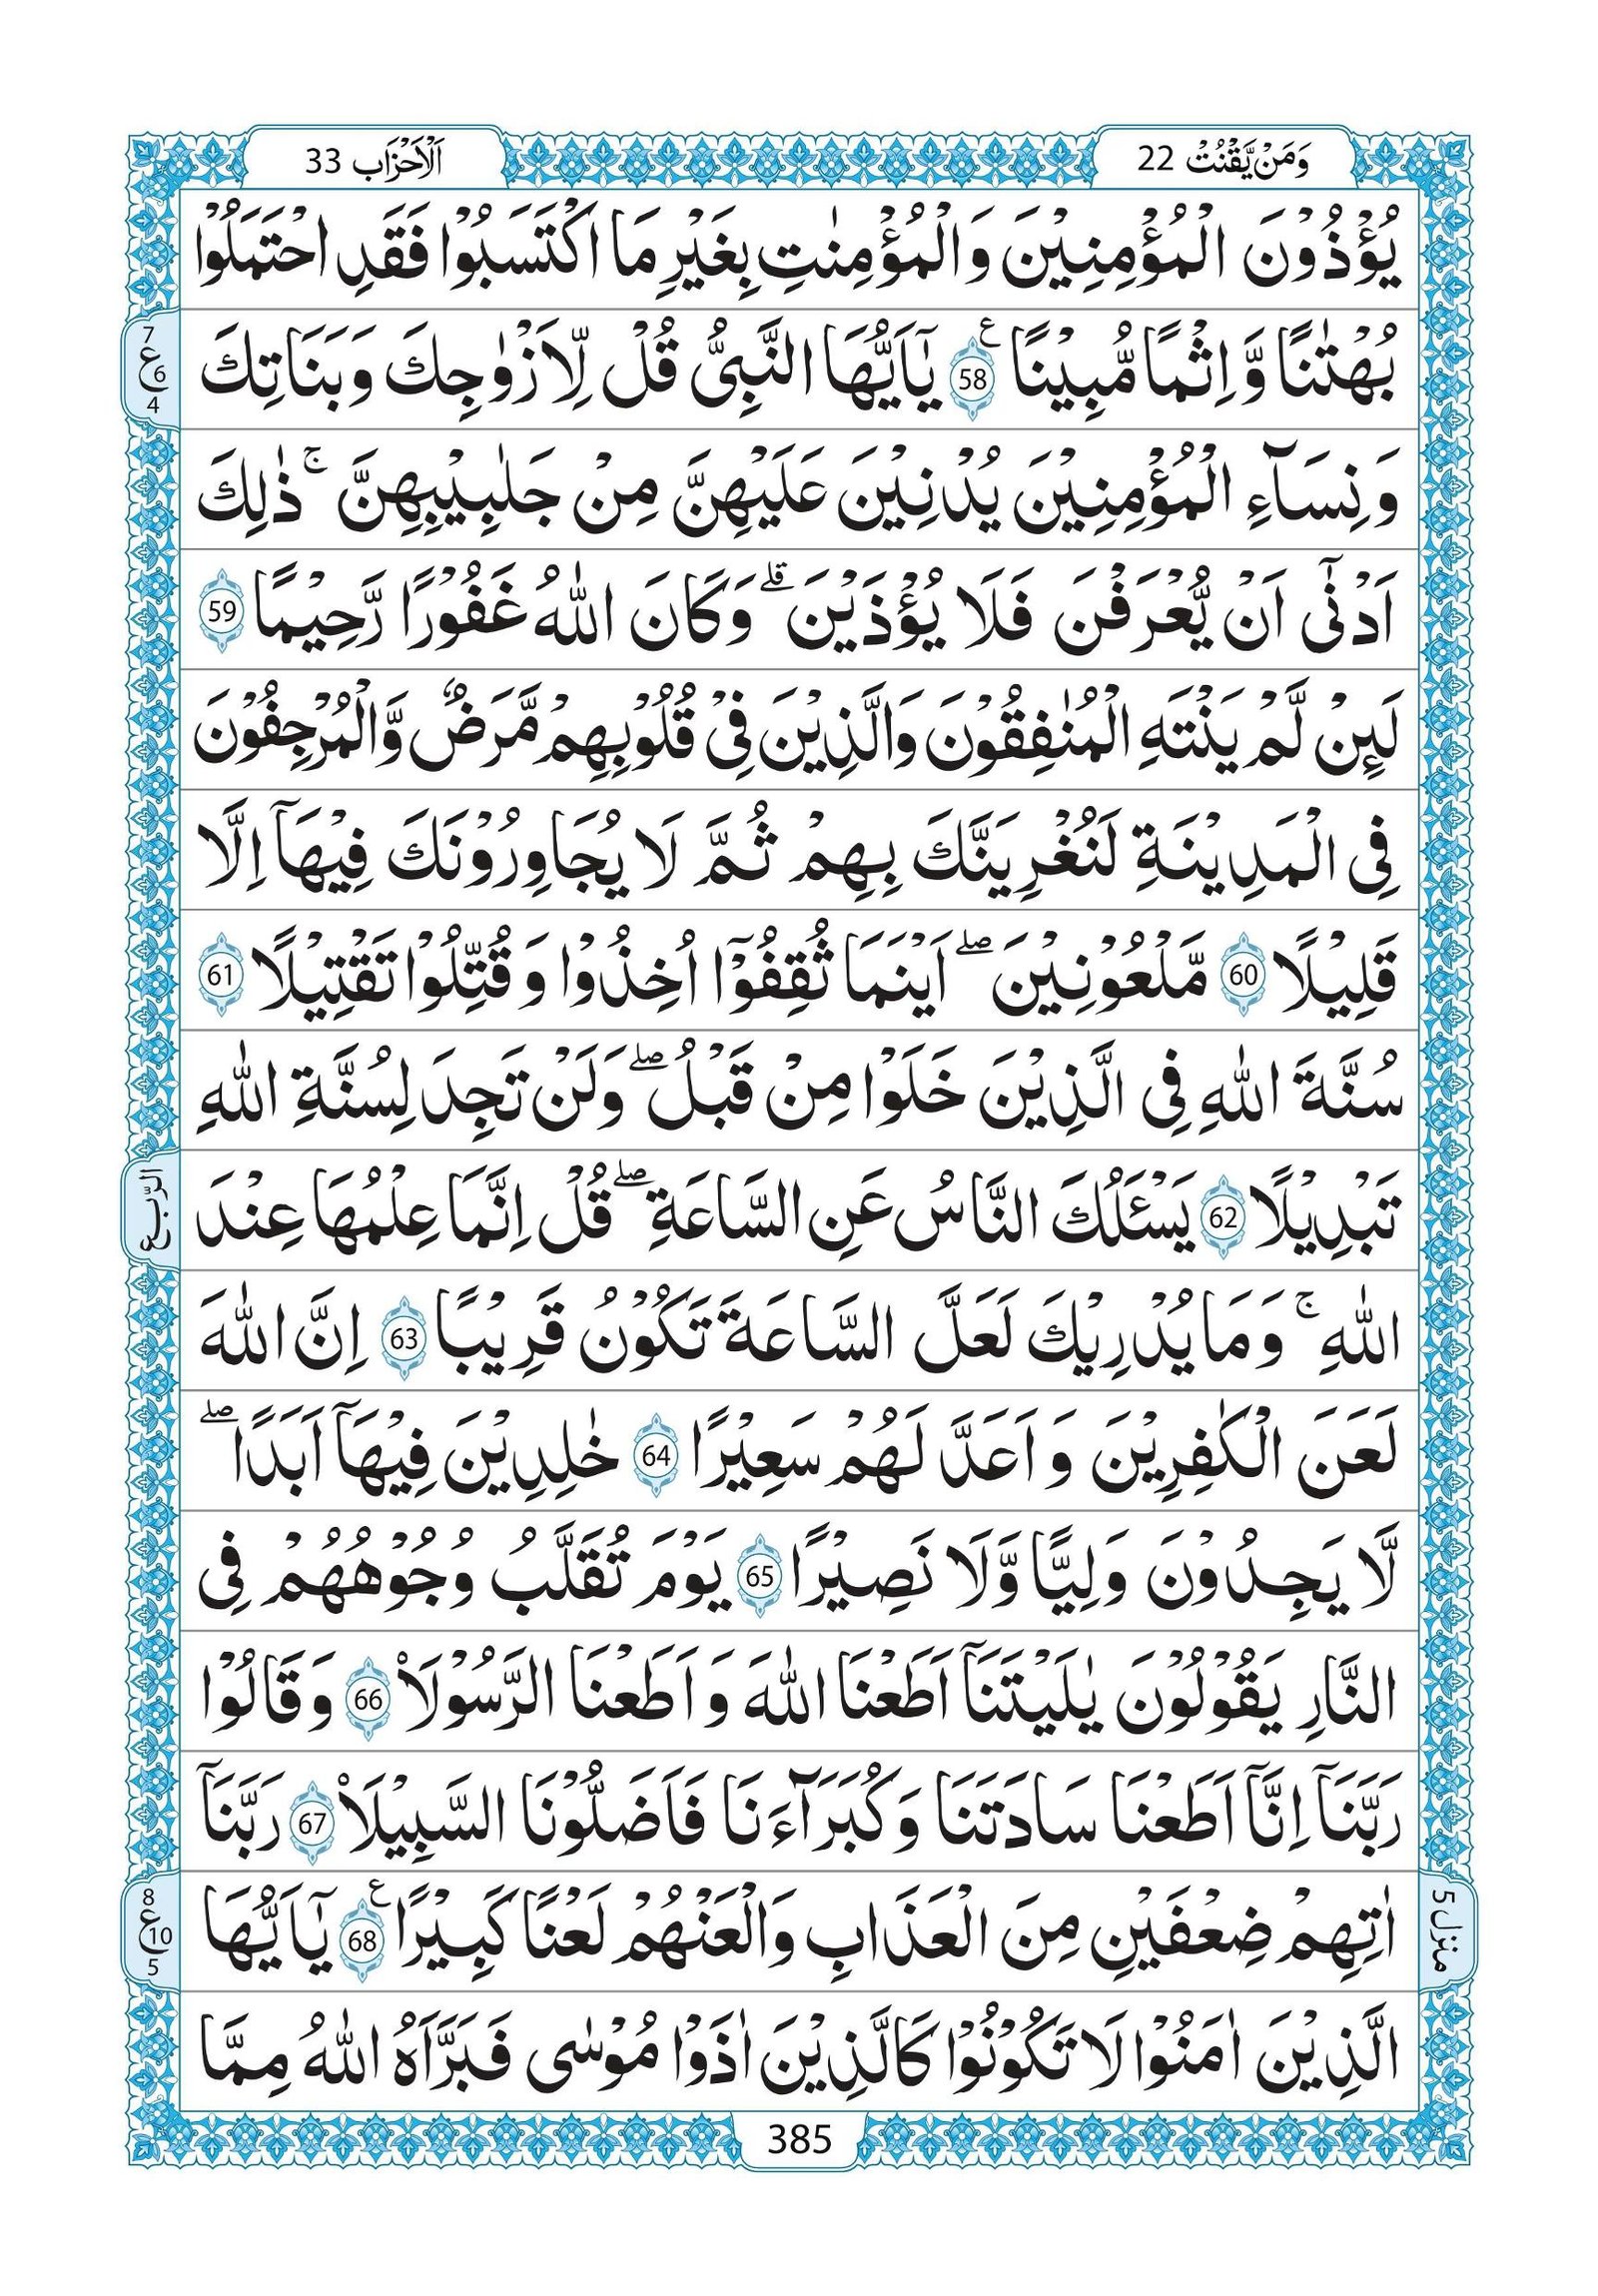 وَمَنْ يَّقْنُتْ 22
اَلْاَحْزَاب 33
يُؤْذُوْنَ الْمُؤْمِنِيْنَ وَ الْمُؤْمِنٰتِ بِغَيْرِ مَا اكْتَسَبُوْا فَقَدِ احْتَمَلُوْا
بُهْتٰنًا وَّ اِثْمًا مُّبِيْنًا ع 58 يٰٓاَيُّهَا النَّبِىُّ قُلْ لِّاَزْوٰجِكَ وَبَنَاتِكَ
7 ع 6 4
وَ نِسَآءِ الْمُؤْمِنِيْنَ يُدْنِيْنَ عَلَيْهِنَّ مِنْ جَلٰبِيْبِهِنَّ ۚ ذٰلِكَ
اَدْنٰٓى اَنْ يُّعْرَفْنَ فَلَا يُؤْذَيْنَ ۗ وَكَانَ اللّٰهُ غَفُوْرًا رَّحِيْمًا 59
لَىِٕنْ لَّمْ يَنْتَهِ الْمُنٰفِقُوْنَ وَالَّذِيْنَ فِىْ قُلُوْبِهِمْ مَّرَضٌ وَّالْمُرْجِفُوْنَ
فِى الْمَدِيْنَةِ لَنُغْرِيَنَّكَ بِهِمْ ثُمَّ لَا يُجَاوِرُوْنَكَ فِيْهَآ اِلَّا
قَلِيْلًا 60 مَّلْعُوْنِيْنَ ۖ اَيْنَمَا ثُقِفُوْٓا اُخِذُوْا وَ قُتِّلُوْا تَقْتِيْلًا 61
سُنَّةَ اللّٰهِ فِى الَّذِيْنَ خَلَوْا مِنْ قَبْلُ ۖ وَلَنْ تَجِدَ لِسُنَّةِ اللّٰهِ
تَبْدِيْلًا 62 يَسْـَٔلُكَ النَّاسُ عَنِ السَّاعَةِ ۖ قُلْ اِنَّمَا عِلْمُهَا عِنْدَ
الرّبع
اللّٰهِ ۚ وَ مَا يُدْرِيْكَ لَعَلَّ السَّاعَةَ تَكُوْنُ قَرِيْبًا 63 اِنَّ اللّٰهَ
لَعَنَ الْكٰفِرِيْنَ وَ اَعَدَّ لَهُمْ سَعِيْرًا 64 خٰلِدِيْنَ فِيْهَآ اَبَدًا ۖ
لَّا يَجِدُوْنَ وَلِيًّا وَّلَا نَصِيْرًا 65 يَوْمَ تُقَلَّبُ وُجُوْهُهُمْ فِى
النَّارِ يَقُوْلُوْنَ يٰلَيْتَنَآ اَطَعْنَا اللّٰهَ وَ اَطَعْنَا الرَّسُوْلَا۠ 66 وَقَالُوْا
رَبَّنَآ اِنَّآ اَطَعْنَا سَادَتَنَا وَكُبَرَآءَنَا فَاَضَلُّوْنَا السَّبِيْلَا۠ 67 رَبَّنَآ
اٰتِهِمْ ضِعْفَيْنِ مِنَ الْعَذَابِ وَالْعَنْهُمْ لَعْنًا كَبِيْرًا ع 68 يٰٓاَيُّهَا
8 ع 10 5
منزل 5
الَّذِيْنَ اٰمَنُوْا لَا تَكُوْنُوْا كَالَّذِيْنَ اٰذَوْا مُوْسٰى فَبَرَّاَهُ اللّٰهُ مِمَّا
385